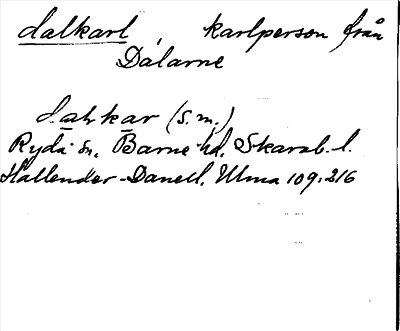 dalkarl, karlperson från
Dalarne
dal,kar (s.m.)
Ryda sn, Barne hd, Skarab. l.
Hallender-Danell, Ulma 109:216